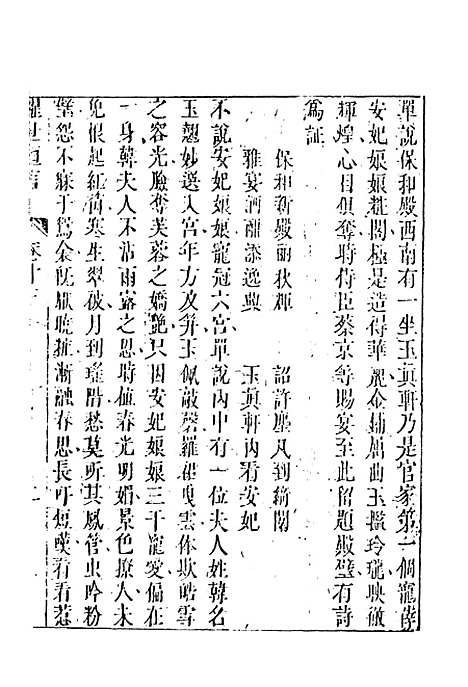 單說保和殿西南有一坐玉真軒乃是官家第一個寵倖
安妃娘娘粧閣極是造得華麗金鋪屈曲玉檻玲瓏映徹
輝煌心目俱奪時侍臣蔡京等賜宴至此留題殿壁有詩
為証
保和新殿麗秋輝　詔許塵凡到綺閣
雅宴酒酣添逸興　玉真軒內看安妃
不說安妃娘娘寵冠六宮單說內中有一位夫人姓韓名
玉翹妙選入宮年方及笄玉佩敲磬羅裙曳雲体欺皓雪
之容光臉奪芙蓉之嬌艷只因安妃娘娘三千寵愛偏在
一身韓夫人不沾雨露之恩時值春光明媚景色撩人未
免恨起紅茵寒生翠被月到瑤階愁莫听其鳳管虫吟粉
壁怨不寐于鴛衾既厭曉粧漸融春思長吁短嘆看看惹
醒世恒言　卷十三